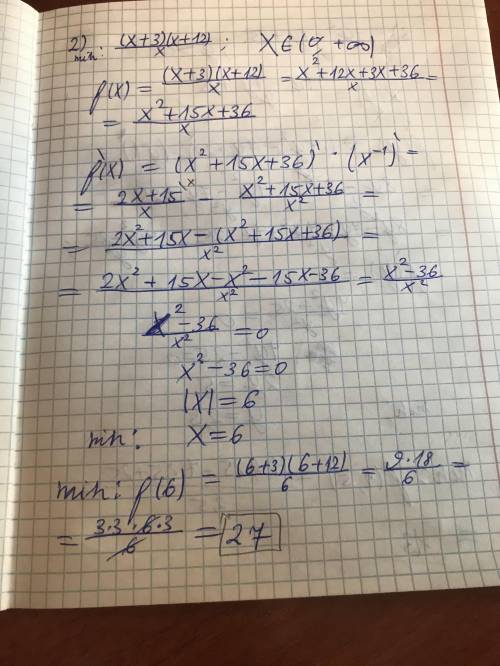 2) min: (x+3)(x+12)/x ; X∈(0, +∞)
f(x) = (x+3)(x+12)/x = x²+12x+3x+36/x =
= x²+15x+36/x
f'(x) = (x²+15x+36)' · (x⁻¹)' =
= 2x+15/x - x²+15x+36/x² =
= 2x²+15x-(x²+15x+36)/x² =
= 2x²+15x-x²-15x-36/x² = x²-36/x²
x²-36/x² = 0
x²-36=0
|x|=6
min: x=6
min: f(6) = (6+3)(6+12)/6 = 9·18/6 =
= 3·3·6·3/6 = 27